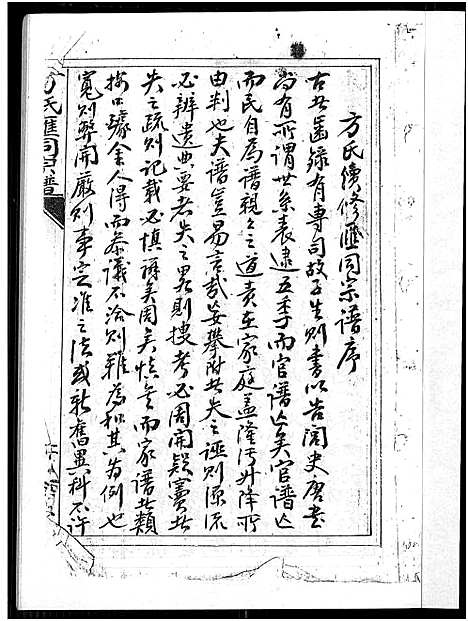 方氏續修匯同宗譜序
古者圖錄有專司故子生則書以告閭史唐書
尚有所謂世系表逮五季而官譜亡矣官譜亡
而民自為譜親親之道責在家庭蓋隆汙升降所
由判也夫譜豈易言哉妄攀附者失之誣則源流
必辨遺典要者失之畧則搜考必周開疑竇者
失之疏則記載必慎辨矣周矣慎矣而家譜者類
按口醵金人得而參議不洽則難為和其為例也
寬則弊開嚴則事定准之法或新舊異科不許
方氏匯同宗譜